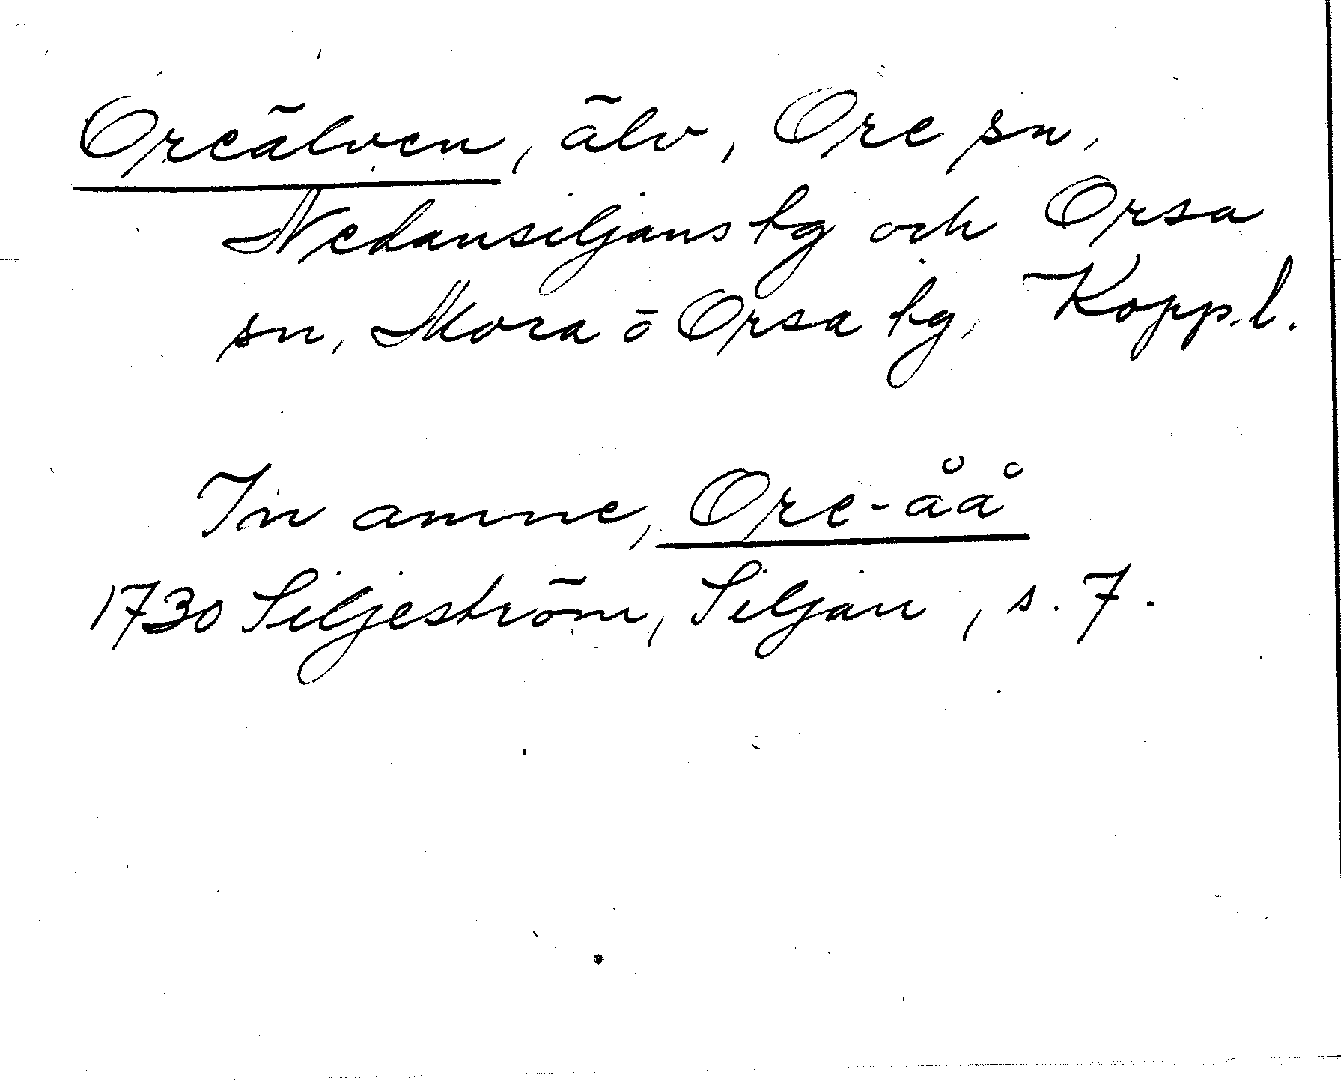 Oreälven, älv, Ore sn,
Nedansiljans tg och Orsa
sn, Mora o Orsa tg, Kopp.l.
In amne, Ore-åå
1730 Siljeström, Siljan, s. 7.